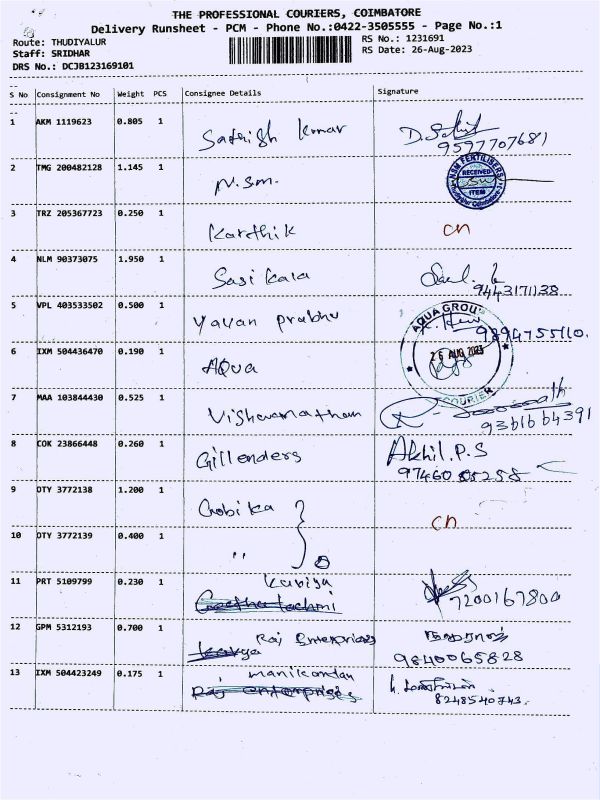 THE PROFESSIONAL COURIERS, COIMBATORE
Delivery Runsheet - PCM - Phone No.:0422-3505555 - Page No.:1
Route: THUDIYALUR
Staff: SRIDHAR
DRS No.: DCJB123169101
RS No.: 1231691
RS Date: 26-Aug-2023
S No Consignment No Weight PCS Consignee Details Signature
1 AKM 1119623 0.805 1 Sathish Kumar
9597707681
2 TMG 200482128 1.145 1 N.Sm.
NSM FERTILISERS
RECEIVED
ITEM
3 TRZ 205367723 0.250 1 Karthik cn
4 NLM 90373075 1.950 1 Sasi Kala
9443171138
5 VPL 403533502 0.500 1 Yavan Prabhu
9894755110.
6 IXM 504436470 0.190 1 AQua
AQUA GROUP
26 AUG 2023
COURIER
7 MAA 103844430 0.525 1 Vishwanathan
9361664391
8 COK 23866448 0.260 1 Gillenders Akhil.P.S
9746005258
9 OTY 3772138 1.200 1 Gobi Ka cn
10 OTY 3772139 0.400 1 "
11 PRT 5109799 0.230 1 Kaviya
Geetha Lachmi
7200167800
12 GPM 5312193 0.700 1 Raj Enterprises
Kavya
9840065828
13 IXM 504423249 0.175 1 Manikandan
Raj enterprises
8248540743.